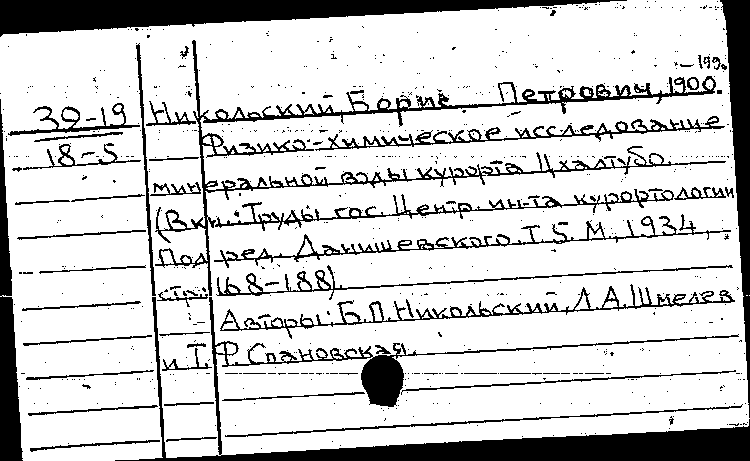 — 199.
39-19 Никольский, Борис Петрович, 1900.
18-5 Физико-химическое исследование
минеральной воды курорта Цхалтубо.
(В кн.: Труды гос. Центр. ин-та курортологии
Под ред. Данишевского. Т. 5. М., 1934,
стр. 168-188).
Авторы: Б.П. Никольский, Л.А. Шмелев
и Т.Ф. Спановская.